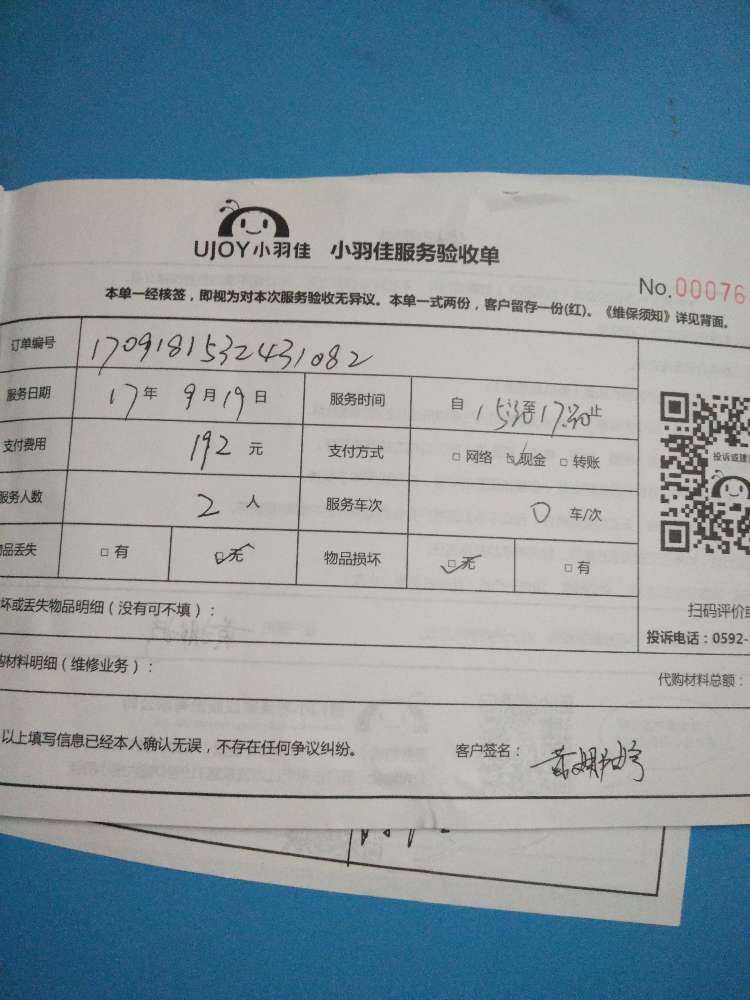 UJOY小羽佳 小羽佳服务验收单
No.00076
本单一经核签，即视为对本次服务验收无异议。本单一式两份，客户留存一份(红)。《维保须知》详见背面。
订单编号 1709181532431082
服务日期 17年 9月19日 服务时间 自 15:30至17:30止
支付费用 192 元 支付方式 □网络 ☑现金 □转账
服务人数 2 人 服务车次 0 车/次
品丢失 □有 ☑无 物品损坏 ☑无 □有
投诉或建
扫码评价或
坏或丢失物品明细（没有可不填）：
投诉电话：0592-
购材料明细（维修业务）：
代购材料总额：
以上填写信息已经本人确认无误，不存在任何争议纠纷。 客户签名：